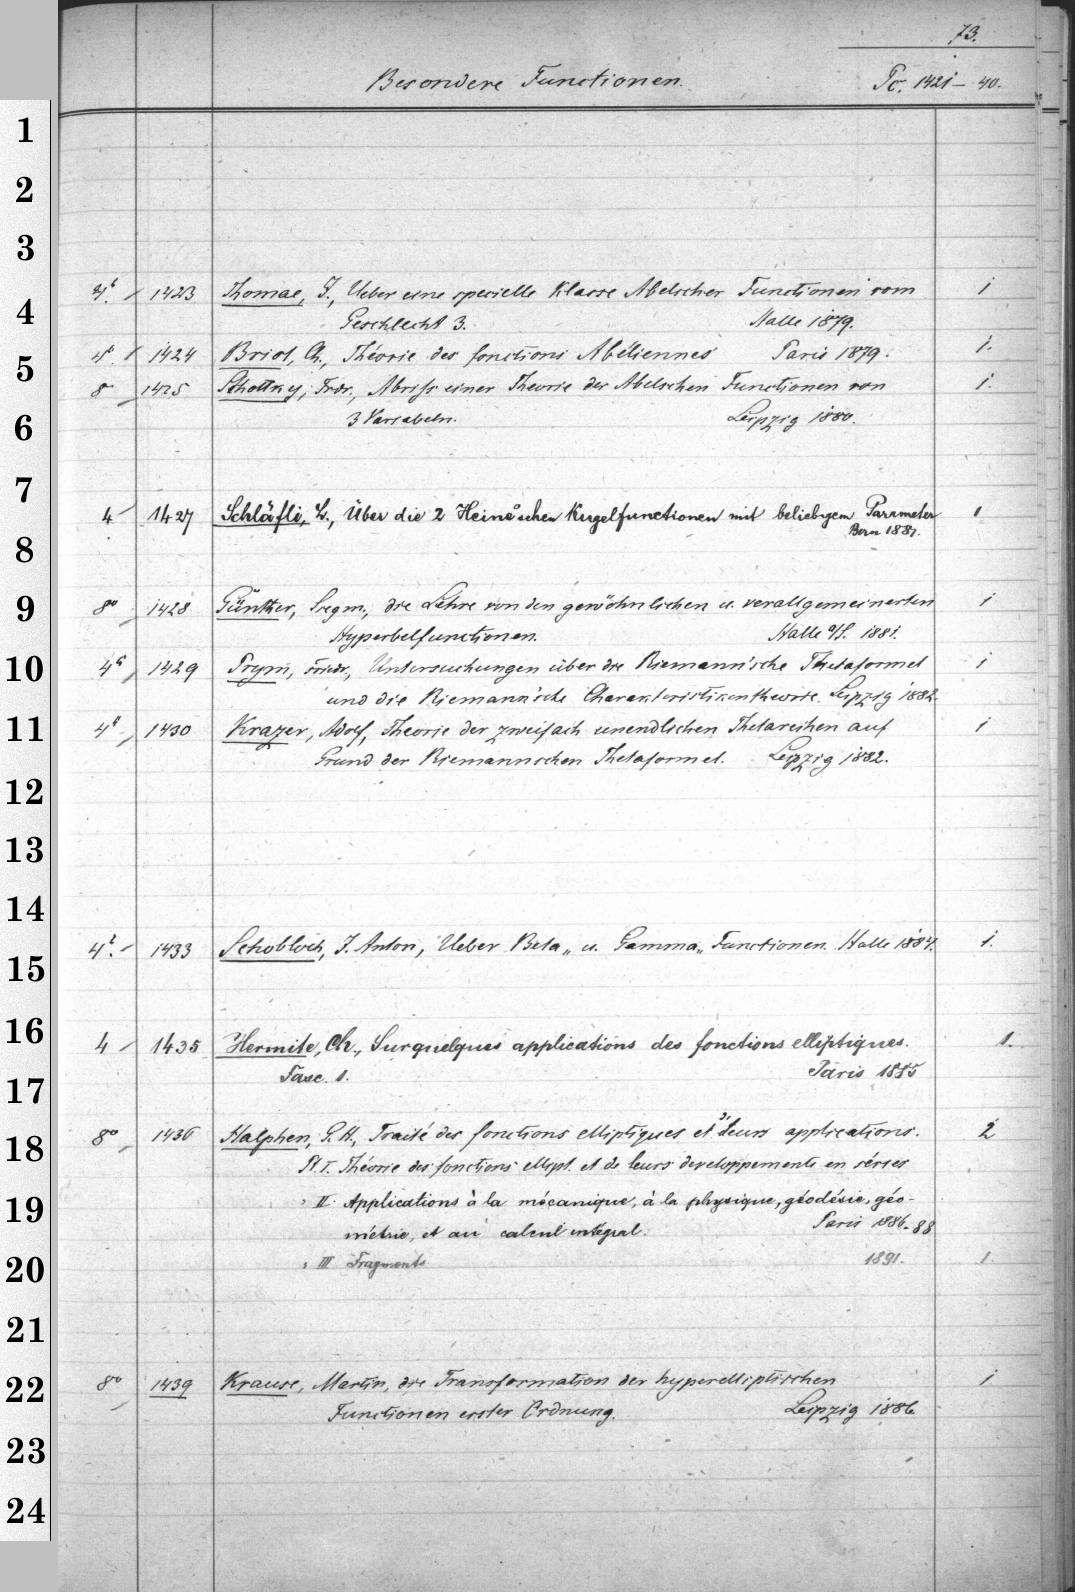 73.
Besondere Functionen. Pc. 1421 – 40.
1
2
3
4º. 1423 Thomae, J., Ueber eine specielle Klasse Abelscher Functionen vom 1
4
Geschlecht 3. Halle 1879.
4º. 1424 Briot, Ch., Théorie des fonctions Abéliennes Paris 1879. 1.
5
8 1425 Schottky, Frdr., Abriss einer Theorie der Abelschen Functionen von 1.
6
3 Variabeln. Leipzig 1880.
7
4 1427 Schläfli, L., Über die 2 Heine'schen Kugelfunctionen mit beliebigem Parameter 1
Bern 1881.
8
9
8º 1428 Günther, Siegm., die Lehre von den gewöhnlichen u. verallgemeinerten 1
Hyperbelfunctionen. Halle a/S. 1881.
10
4º 1429 Prym, Friedr., Untersuchungen über die Riemann'sche Thetaformel 1
und die Riemann'sche Charakteristikentheorie. Leipzig 1882.
11
4º 1430 Krazer, Adolf, Theorie der zweifach unendlichen Thetareihen auf 1
Grund der Riemannschen Thetaformel. Leipzig 1882.
12
13
14
4º. 1433 Schobloch, J. Anton, Ueber Beta„ u. Gamma„ Functionen. Halle 1884. 1.
15
16
4 1435 Hermite, Ch., Sur quelques applications des fonctions elliptiques. 1.
Fasc. 1. Paris 1885
17
8º 1436 Halphen, G. H., Traité des fonctions elliptiques et de leurs applications. 2
18
Pt. I. Théorie des fonctions ellipt. et de leurs developpements en séries
19
" II. Applications à la mécanique, à la physique, géodésie, géo-
métrie, et au calcul intégral. Paris 1886-88
20
" III Fragments 1891. 1.
21
22
8º 1439 Krause, Martin, die Transformation der hyperelliptischen 1
Functionen erster Ordnung. Leipzig 1886.
23
24